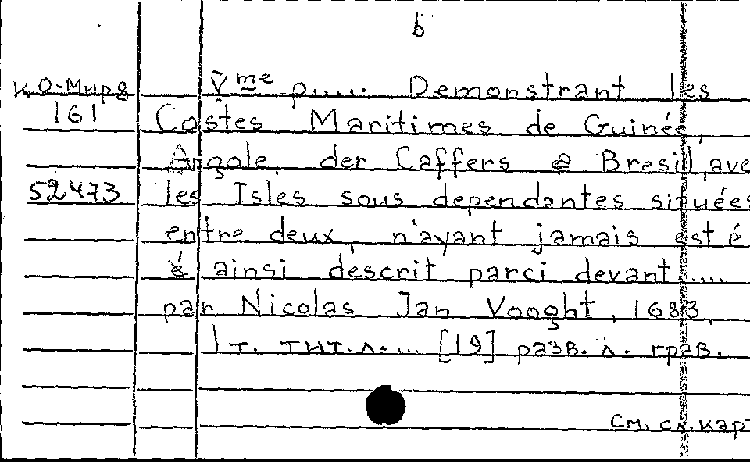 б
К.О-Мир8 V̲me p..... Demonstrant les
161 Costes Maritimes de Guinée,
Angole, der Caffers e Bresil, ave
52473 les Isles sous dependantes situées
entre deux, n'ayant jamais esté
é ainsi descrit parci devant.....
par Nicolas Jan Vooght, 1683.
1 т. тит. л. ... [19] разв. л. грав.
См. сл. кар